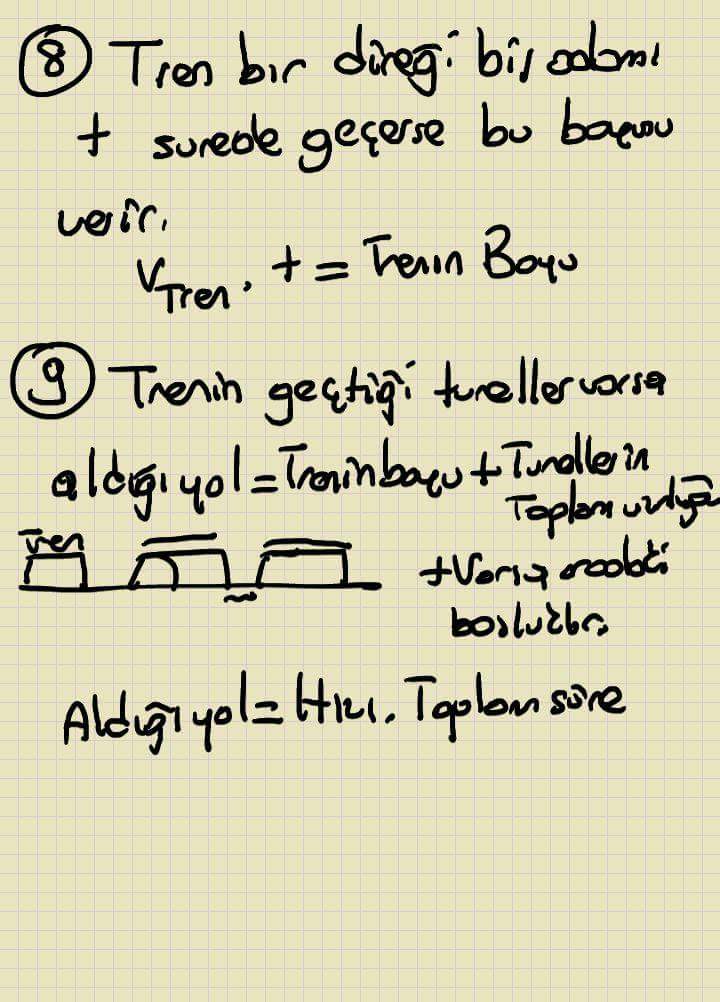 8 Tren bir direği bir adamı
t surede geçerse bu boyunu
verir.
V Tren . t = Trenin Boyu
9 Trenin geçtiği tuneller varsa
aldığı yol = Trenin boyu + Tunellerin
Toplam uzunluğu
Tren
+ Varsa aradaki
boşluklar
Aldığı yol = Hızı . Toplam süre